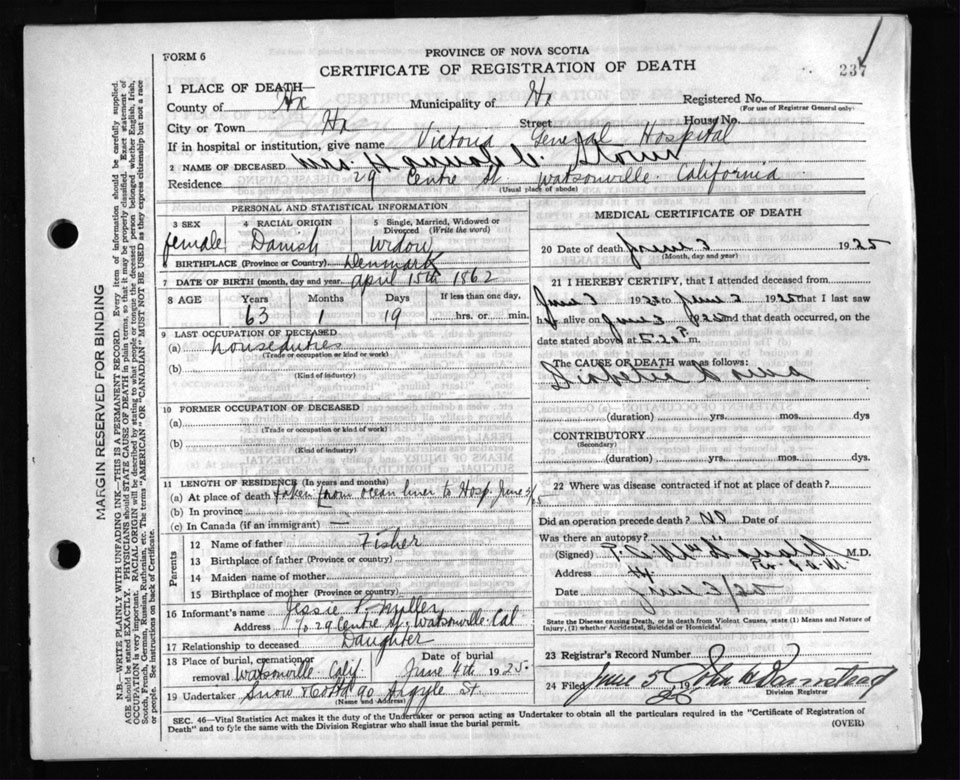 FORM 6
PROVINCE OF NOVA SCOTIA
CERTIFICATE OF REGISTRATION OF DEATH
237
1 PLACE OF DEATH—
County of Hx Municipality of Hx Registered No.
(For use of Registrar General only)
City or Town Hx Street House No.
If in hospital or institution, give name Victoria General Hospital
2 NAME OF DECEASED Mrs. Hannah C.
Residence 29 Centre St. Watsonville California
(Usual place of abode)
PERSONAL AND STATISTICAL INFORMATION
3 SEX 4 RACIAL ORIGIN 5 Single, Married, Widowed or Divorced (Write the word)
female Danish Widow
6 BIRTHPLACE (Province or Country) Denmark
7 DATE OF BIRTH (month, day and year) april 15th 1862
8 AGE Years Months Days If less than one day,
63 1 19 hrs. or min.
9 LAST OCCUPATION OF DECEASED
(a) houseduties
(Trade or occupation or kind or work)
(b)
(Kind of industry)
10 FORMER OCCUPATION OF DECEASED
(a)
(Trade or occupation or kind of work)
(b)
(Kind of industry)
11 LENGTH OF RESIDENCE (In years and months)
(a) At place of death taken from ocean liner to Hosp. June 3/25
(b) In province
(c) In Canada (if an immigrant) —
Parents
12 Name of father Fisher
13 Birthplace of father (Province or country)
14 Maiden name of mother
15 Birthplace of mother (Province or country)
16 Informant's name Jessie P. Miller
Address c/o 29 Centre St., Watsonville Cal
17 Relationship to deceased Daughter
18 Place of burial, cremation or removal Watsonville Calif. Date of burial June 4th 1925
19 Undertaker Snow & Co Ltd 90 Argyle St.
(Name and Address)
MEDICAL CERTIFICATE OF DEATH
20 Date of death June 3 1925
(Month, day and year)
21 I HEREBY CERTIFY, that I attended deceased from
June 3 1925 to June 3 1925 that I last saw
h alive on June 3 1925 and that death occurred, on the
date stated above at 5.20 P. m.
The CAUSE OF DEATH was as follows:
Diabetic Coma
(duration) yrs. mos. dys
CONTRIBUTORY
(Secondary)
(duration) yrs. mos. days
22 Where was disease contracted if not at place of death?
Did an operation precede death? No Date of
Was there an autopsy?
(Signed) M.D.
Address Hx
Date June 3/25
State the Disease causing Death, or in death from Violent Causes, state (1) Means and Nature of Injury, (2) whether Accidental, Suicidal or Homicidal.
23 Registrar's Record Number
24 Filed June 5 1925 John
Division Registrar
SEC. 46—Vital Statistics Act makes it the duty of the Undertaker or person acting as Undertaker to obtain all the particulars required in the "Certificate of Registration of
Death" and to fyle the same with the Division Registrar who shall issue the burial permit. (OVER)
MARGIN RESERVED FOR BINDING
N.B.—WRITE PLAINLY WITH UNFADING INK—THIS IS A PERMANENT RECORD. Every item of information should be carefully supplied.
AGE should be stated EXACTLY. PHYSICIANS should STATE CAUSE OF DEATH in plain terms, so that it may be properly classified. Exact statement of
OCCUPATION is very important. RACIAL ORIGIN will be described by stating to what people or tongue the deceased person belonged whether English, Irish,
Scotch, French, German, Russian, Ruthenian, etc. The terms "AMERICAN" OR "CANADIAN" MUST NOT BE USED as they express citizenship but not a race
or people. See instructions on back of Certificate.